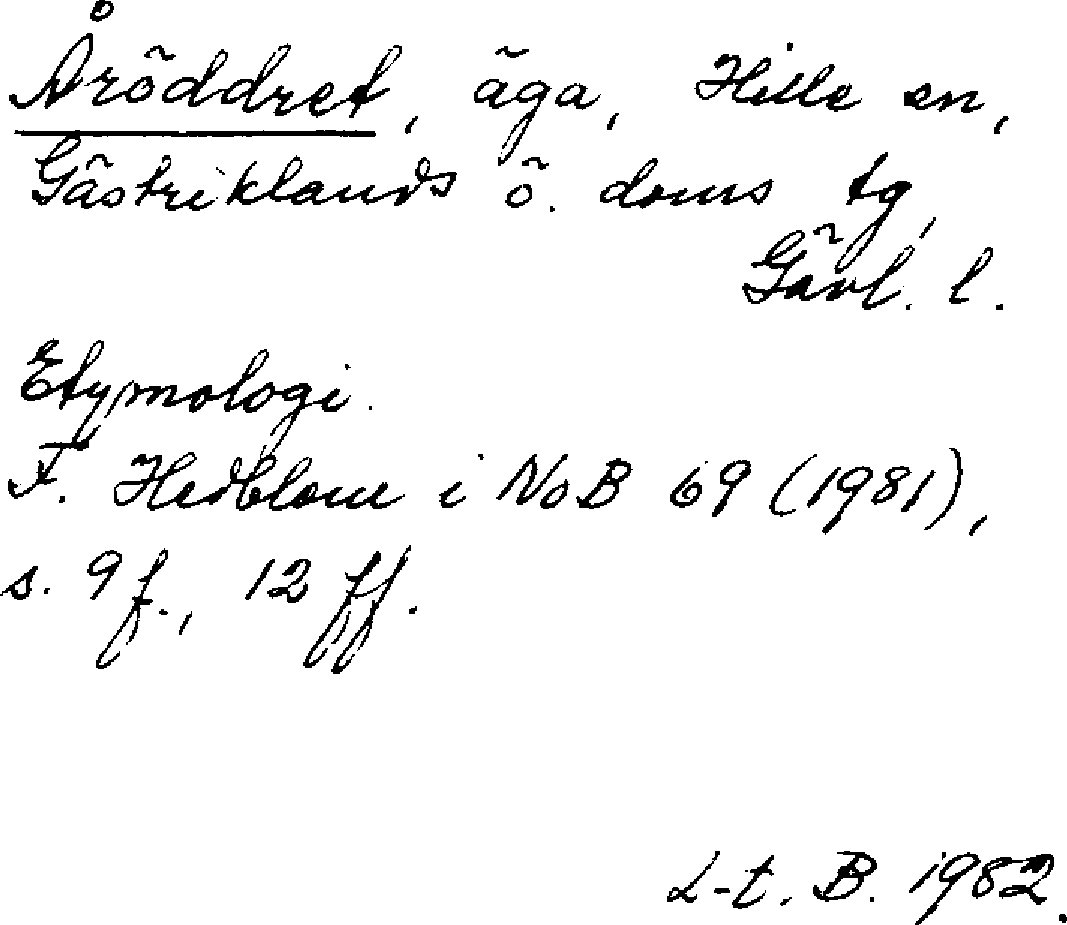 Åröddret, äga, Hille sn,
Gästriklands ö. doms tg,
Gävl. l.
Etymologi.
F. Hedblom i NoB 69 (1981),
s. 9 f., 12 ff.
L-t. B. 1982.